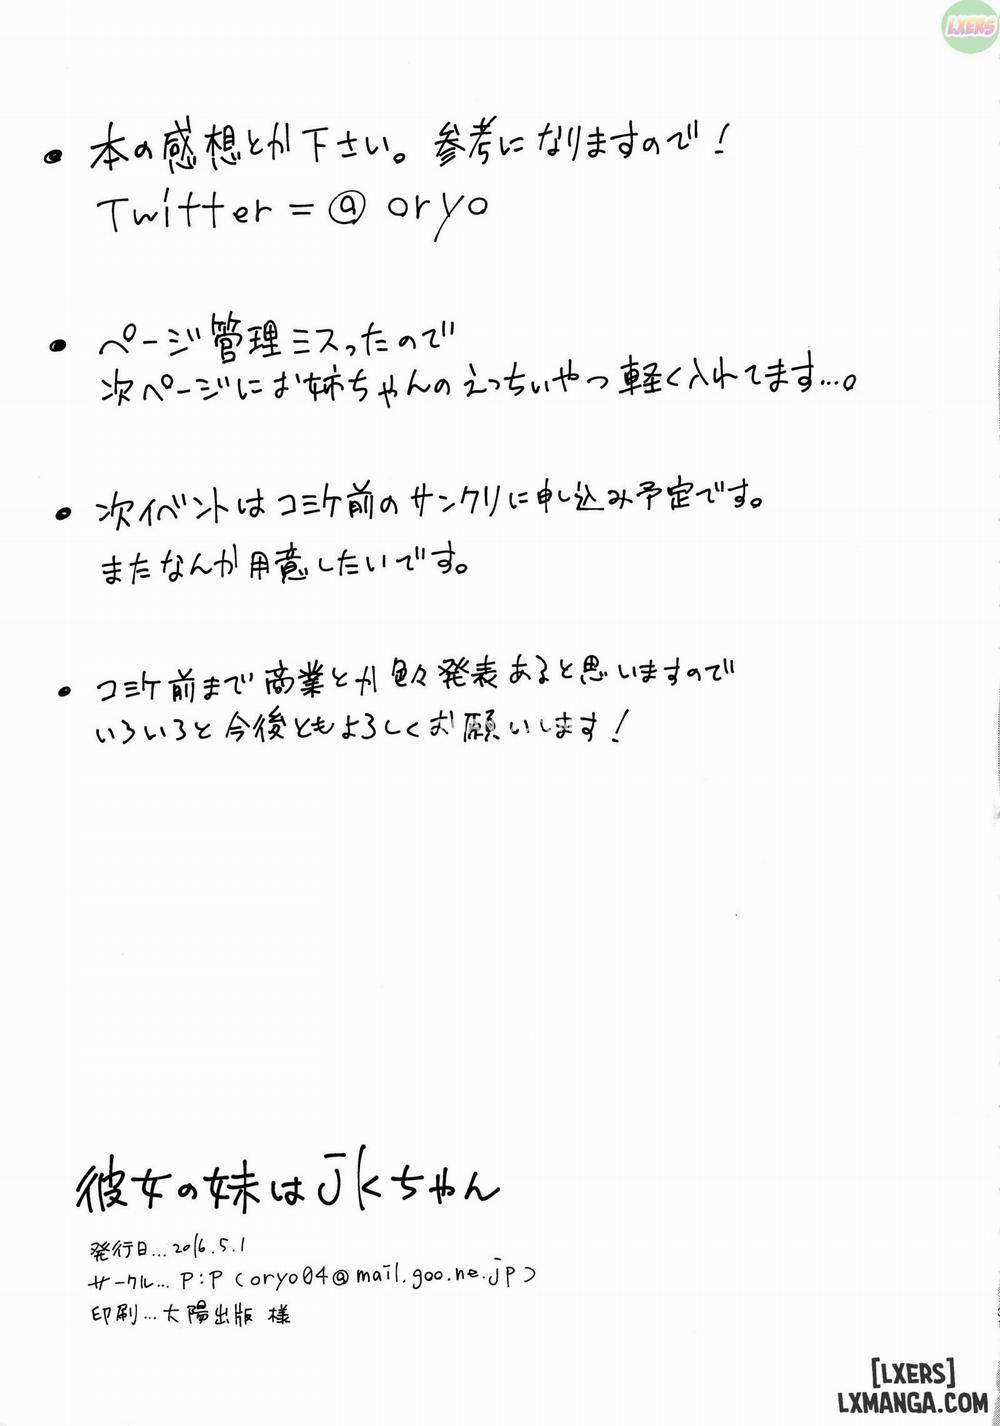 LXERS
• 本の感想とか下さい。参考になりますので!
Twitter=@oryo
• ページ管理ミスったので
次ページにお姉ちゃんのえっちぃやつ軽く入れてます…。
• 次イベントはコミケ前のサンクリに申し込み予定です。
またなんか用意したいです。
• コミケ前まで商業とか色々発表あると思いますので
いろいろと今後ともよろしくお願いします!
彼女の妹はJKちゃん
発行日…2016.5.1
サークル…P:P(oryo04@mail.goo.ne.jp)
印刷…大陽出版 様
[LXERS]
LXMANGA.COM